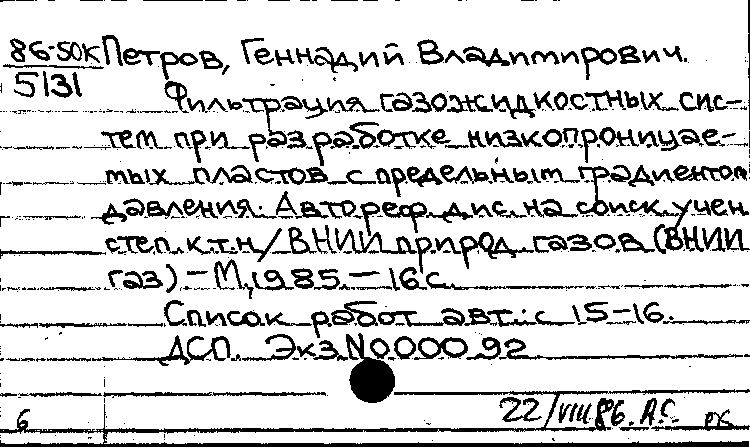 86-50К Петров, Геннадий Владимирович.
5131
Фильтрация газожидкостных сис-
тем при разработке низкопроницае-
мых пластов с предельным градиентом
давления: Автореф. дис. на соиск. учен
степ. к.т.н / ВНИИ природ. газов (ВНИИ
газ) – М., 1985. – 16 с.
Список работ авт.: с 15–16.
ДСП. Экз. N 000092
22/VIII 86. А.С.
6